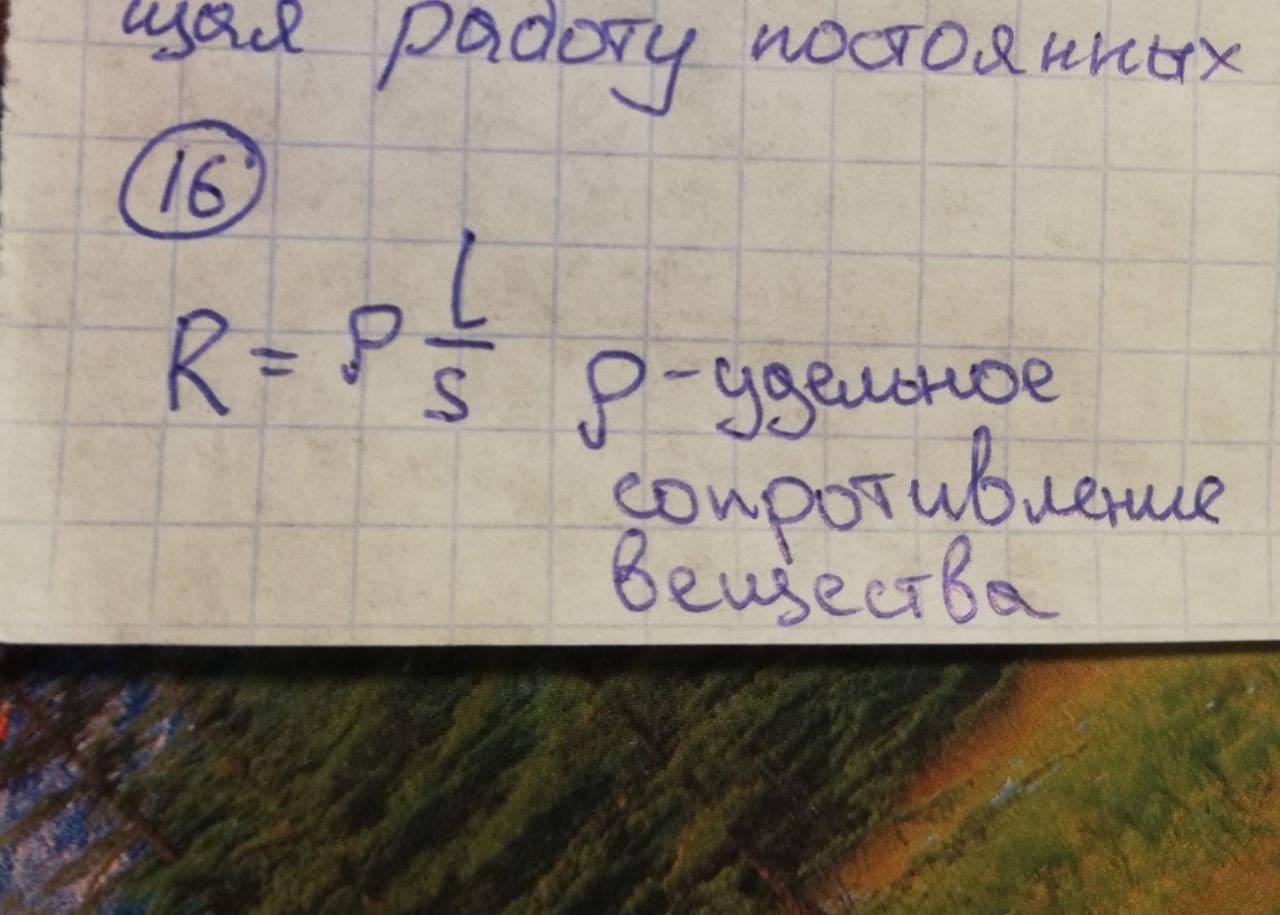 щая работу постоянных
16
R = ρ l/s ρ - удельное
сопротивление
вещества